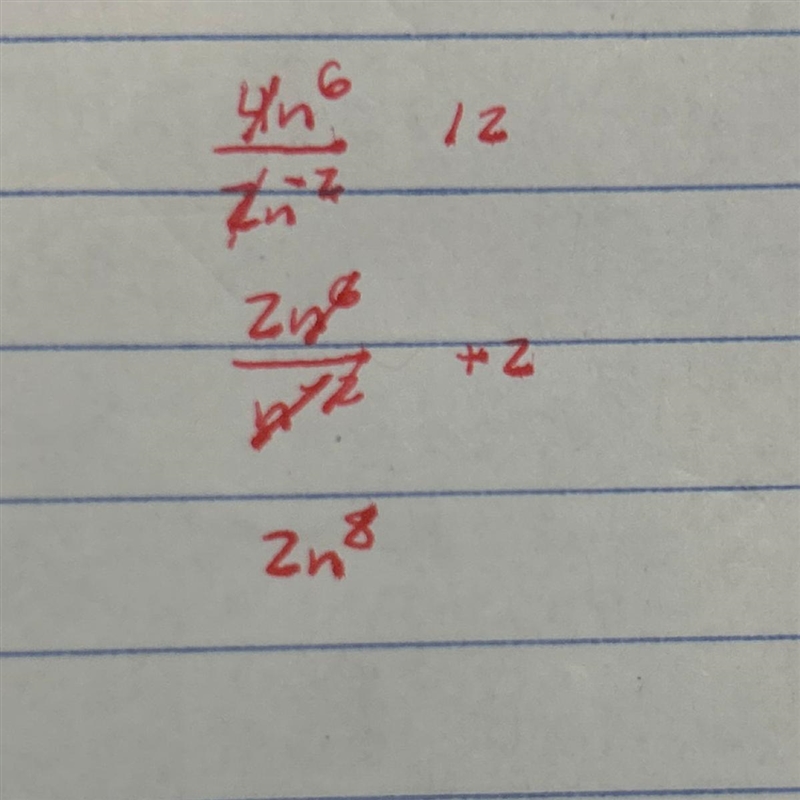 4n^6 / 2n^-2 12
2n^6 / n^-2 +2
2n^8